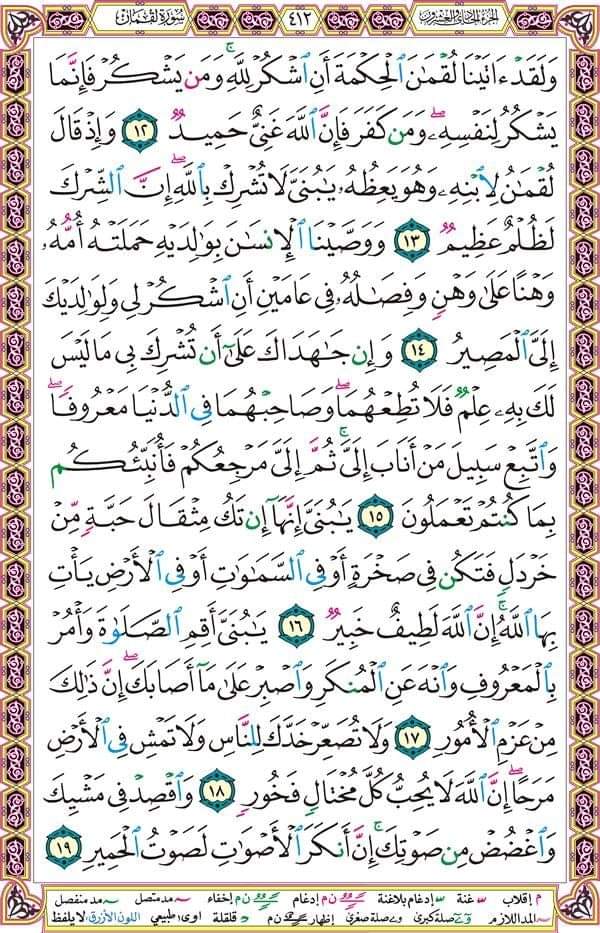 الجزء الحادي والعشرون ٤١٢ سورة لقمان
وَلَقَدْ ءَاتَيْنَا لُقْمَٰنَ ٱلْحِكْمَةَ أَنِ ٱشْكُرْ لِلَّهِۚ وَمَن يَشْكُرْ فَإِنَّمَا
يَشْكُرُ لِنَفْسِهِۦۖ وَمَن كَفَرَ فَإِنَّ ٱللَّهَ غَنِىٌّ حَمِيدٌ ١٢ وَإِذْ قَالَ
لُقْمَٰنُ لِٱبْنِهِۦ وَهُوَ يَعِظُهُۥ يَٰبُنَىَّ لَا تُشْرِكْ بِٱللَّهِۖ إِنَّ ٱلشِّرْكَ
لَظُلْمٌ عَظِيمٌ ١٣ وَوَصَّيْنَا ٱلْإِنسَٰنَ بِوَٰلِدَيْهِ حَمَلَتْهُ أُمُّهُۥ
وَهْنًا عَلَىٰ وَهْنٍ وَفِصَٰلُهُۥ فِى عَامَيْنِ أَنِ ٱشْكُرْ لِى وَلِوَٰلِدَيْكَ
إِلَىَّ ٱلْمَصِيرُ ١٤ وَإِن جَٰهَدَاكَ عَلَىٰٓ أَن تُشْرِكَ بِى مَا لَيْسَ
لَكَ بِهِۦ عِلْمٌ فَلَا تُطِعْهُمَاۖ وَصَاحِبْهُمَا فِى ٱلدُّنْيَا مَعْرُوفًاۖ
وَٱتَّبِعْ سَبِيلَ مَنْ أَنَابَ إِلَىَّۚ ثُمَّ إِلَىَّ مَرْجِعُكُمْ فَأُنَبِّئُكُم
بِمَا كُنتُمْ تَعْمَلُونَ ١٥ يَٰبُنَىَّ إِنَّهَآ إِن تَكُ مِثْقَالَ حَبَّةٍ مِّنْ
خَرْدَلٍ فَتَكُن فِى صَخْرَةٍ أَوْ فِى ٱلسَّمَٰوَٰتِ أَوْ فِى ٱلْأَرْضِ يَأْتِ
بِهَا ٱللَّهُۚ إِنَّ ٱللَّهَ لَطِيفٌ خَبِيرٌ ١٦ يَٰبُنَىَّ أَقِمِ ٱلصَّلَوٰةَ وَأْمُرْ
بِٱلْمَعْرُوفِ وَٱنْهَ عَنِ ٱلْمُنكَرِ وَٱصْبِرْ عَلَىٰ مَآ أَصَابَكَۖ إِنَّ ذَٰلِكَ
مِنْ عَزْمِ ٱلْأُمُورِ ١٧ وَلَا تُصَعِّرْ خَدَّكَ لِلنَّاسِ وَلَا تَمْشِ فِى ٱلْأَرْضِ
مَرَحًاۖ إِنَّ ٱللَّهَ لَا يُحِبُّ كُلَّ مُخْتَالٍ فَخُورٍ ١٨ وَٱقْصِدْ فِى مَشْيِكَ
وَٱغْضُضْ مِن صَوْتِكَۚ إِنَّ أَنكَرَ ٱلْأَصْوَٰتِ لَصَوْتُ ٱلْحَمِيرِ ١٩
م إقلاب غنة إدغام بلاغنة ن م إدغام ن م إخفاء مد متصل مد منفصل
المد اللازم صلة كبرى صلة صغرى إظهار ن م قلقلة اوى: طبيعي اللون الأزرق: لا يلفظ